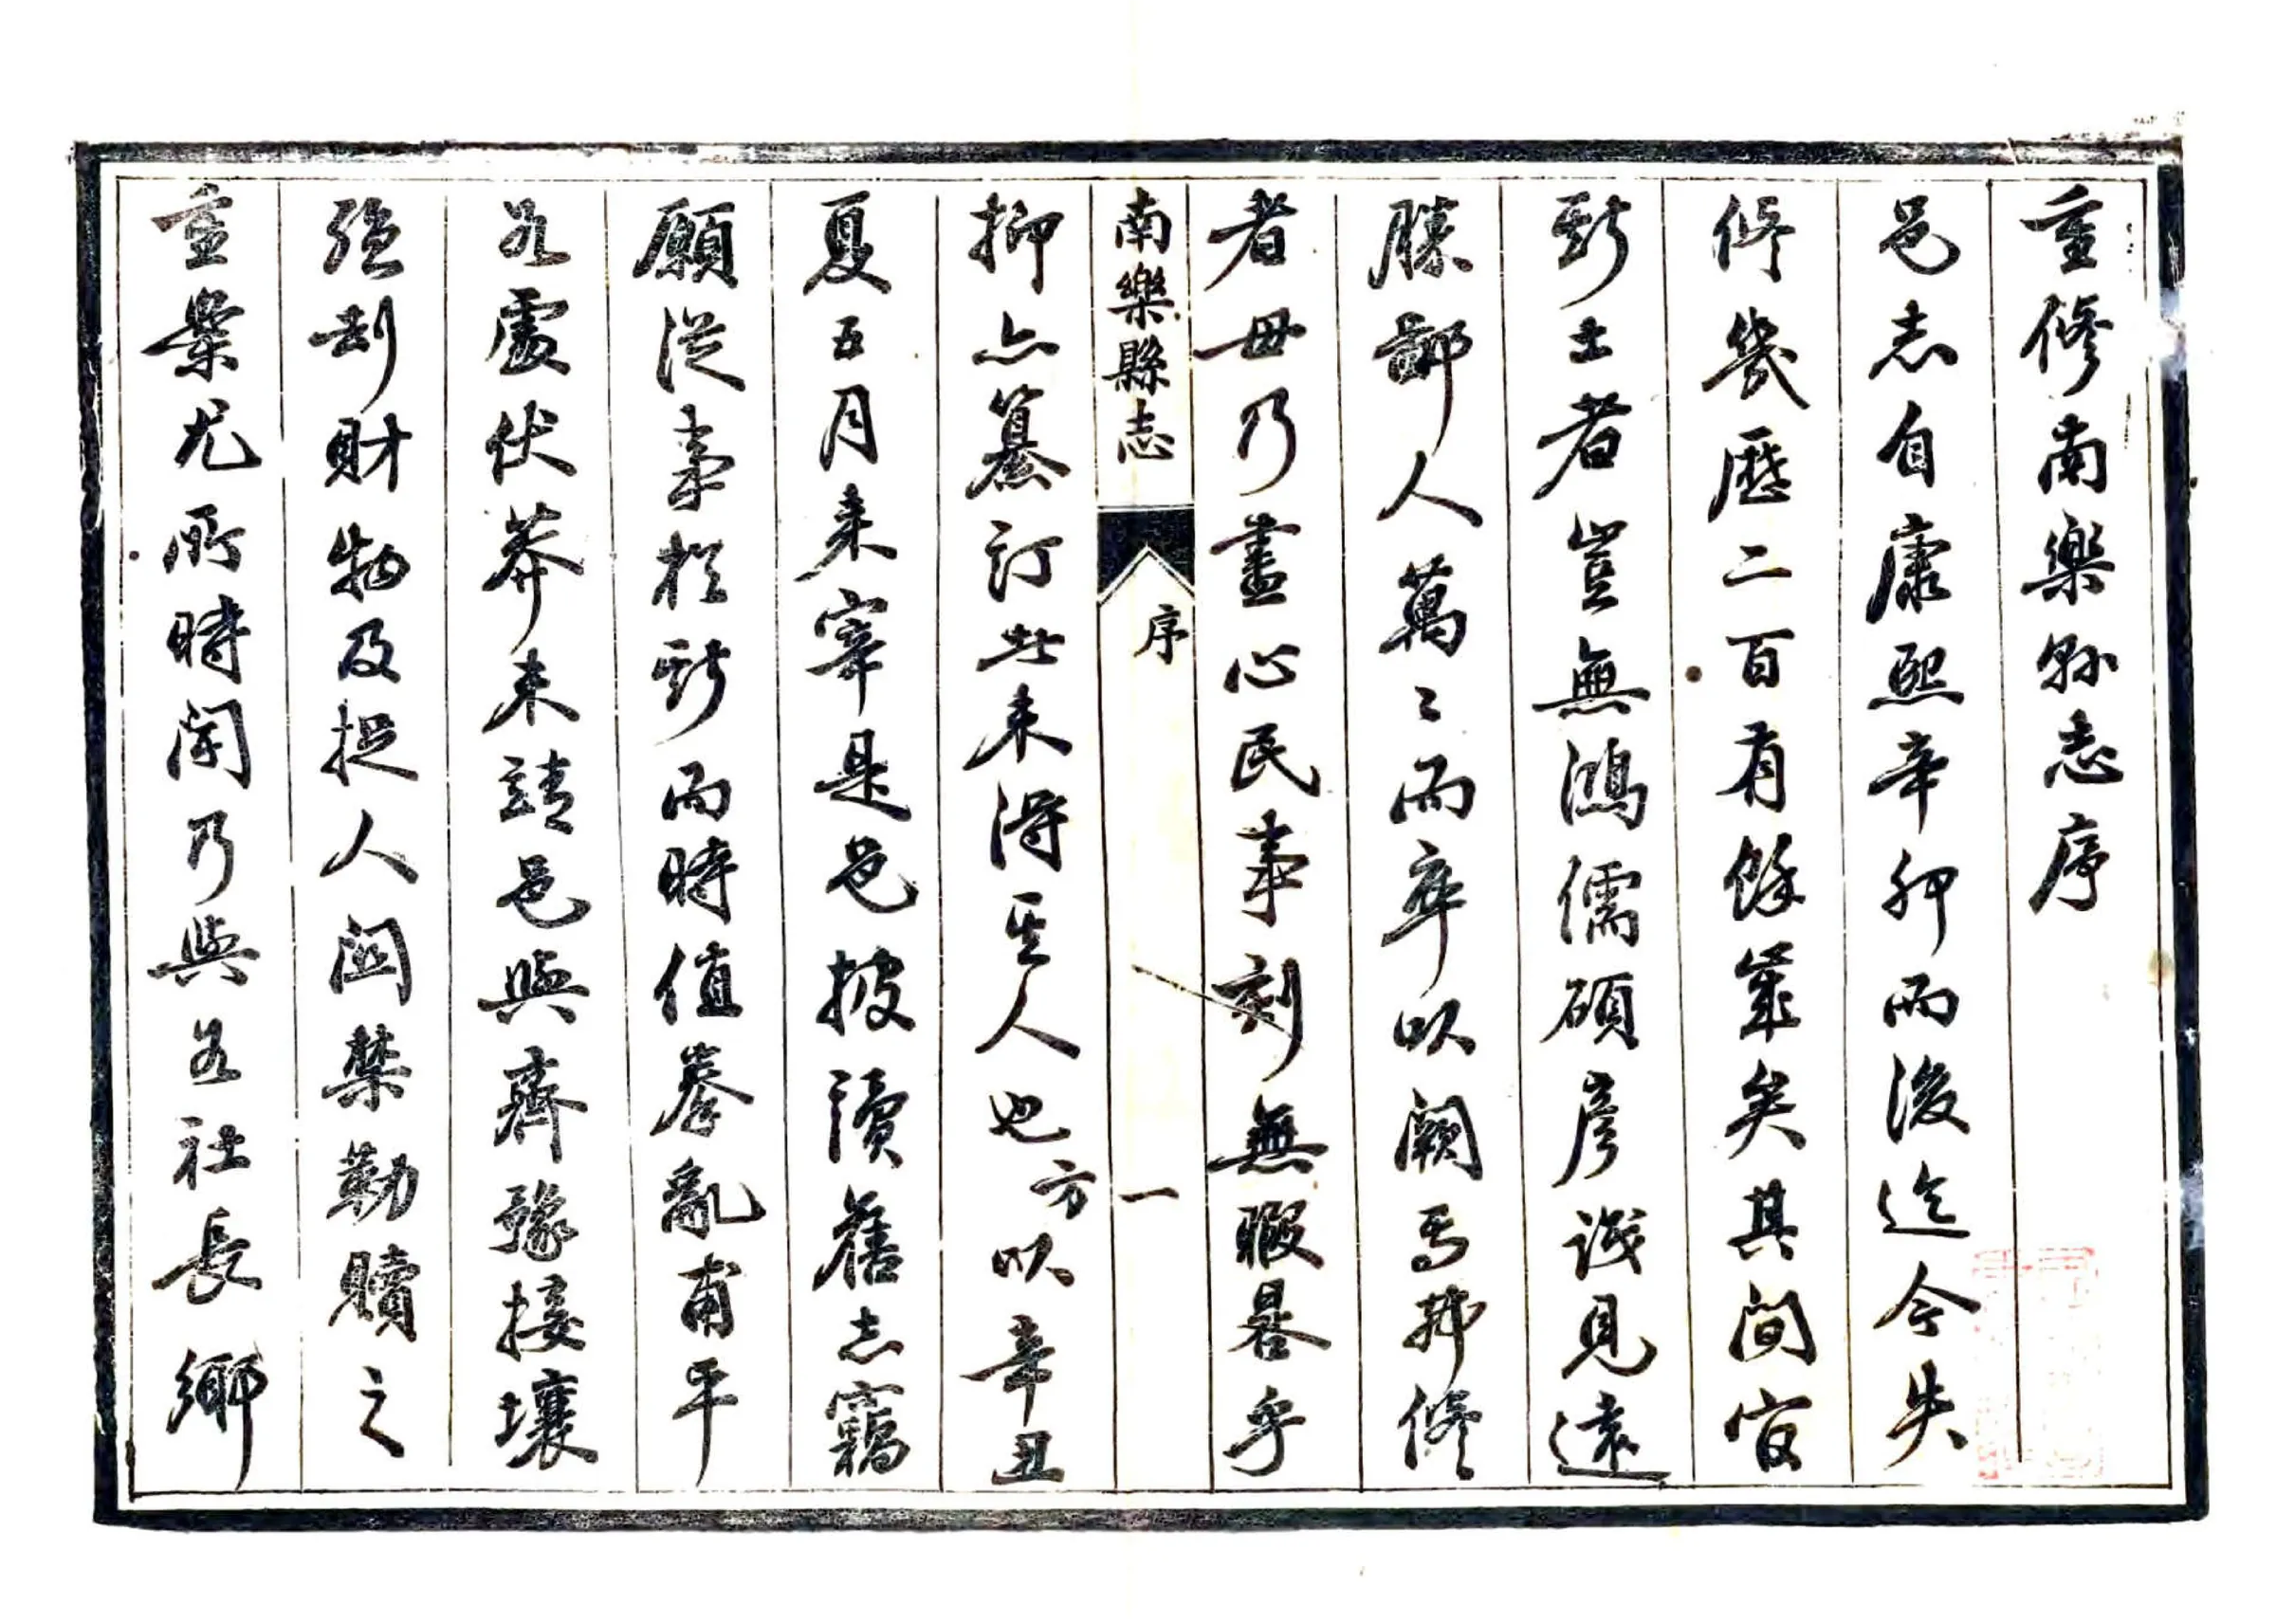 重修南樂縣志序
邑志自康熙辛卯而後迄今失
修幾歷二百有餘年矣其間官
斯土者豈無鴻儒碩彥識見遠
勝鄙人萬〻而卒以闕焉弗修
者毋乃盡心民事刻無暇晷乎
南樂縣志
序
一
抑亦纂訂者未得其人也方以辛丑
夏五月來宰是邑披讀舊志竊
願從事於斯而時值拳亂甫平
各處伏莽未靖邑與齊豫接壤
強刦財物及捉人圖禁勒贖之
重案尤所時聞乃與各社長鄉